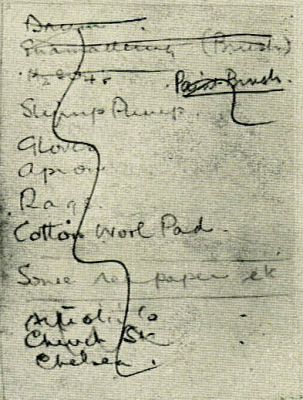 Drum.
Enamelling (Brush)
H2SO4
Paint Brush.
Stirrup Pump.
Gloves
apron
Rags.
Cotton Wool Pad.
Some paper etc
Church St
Chelsea.